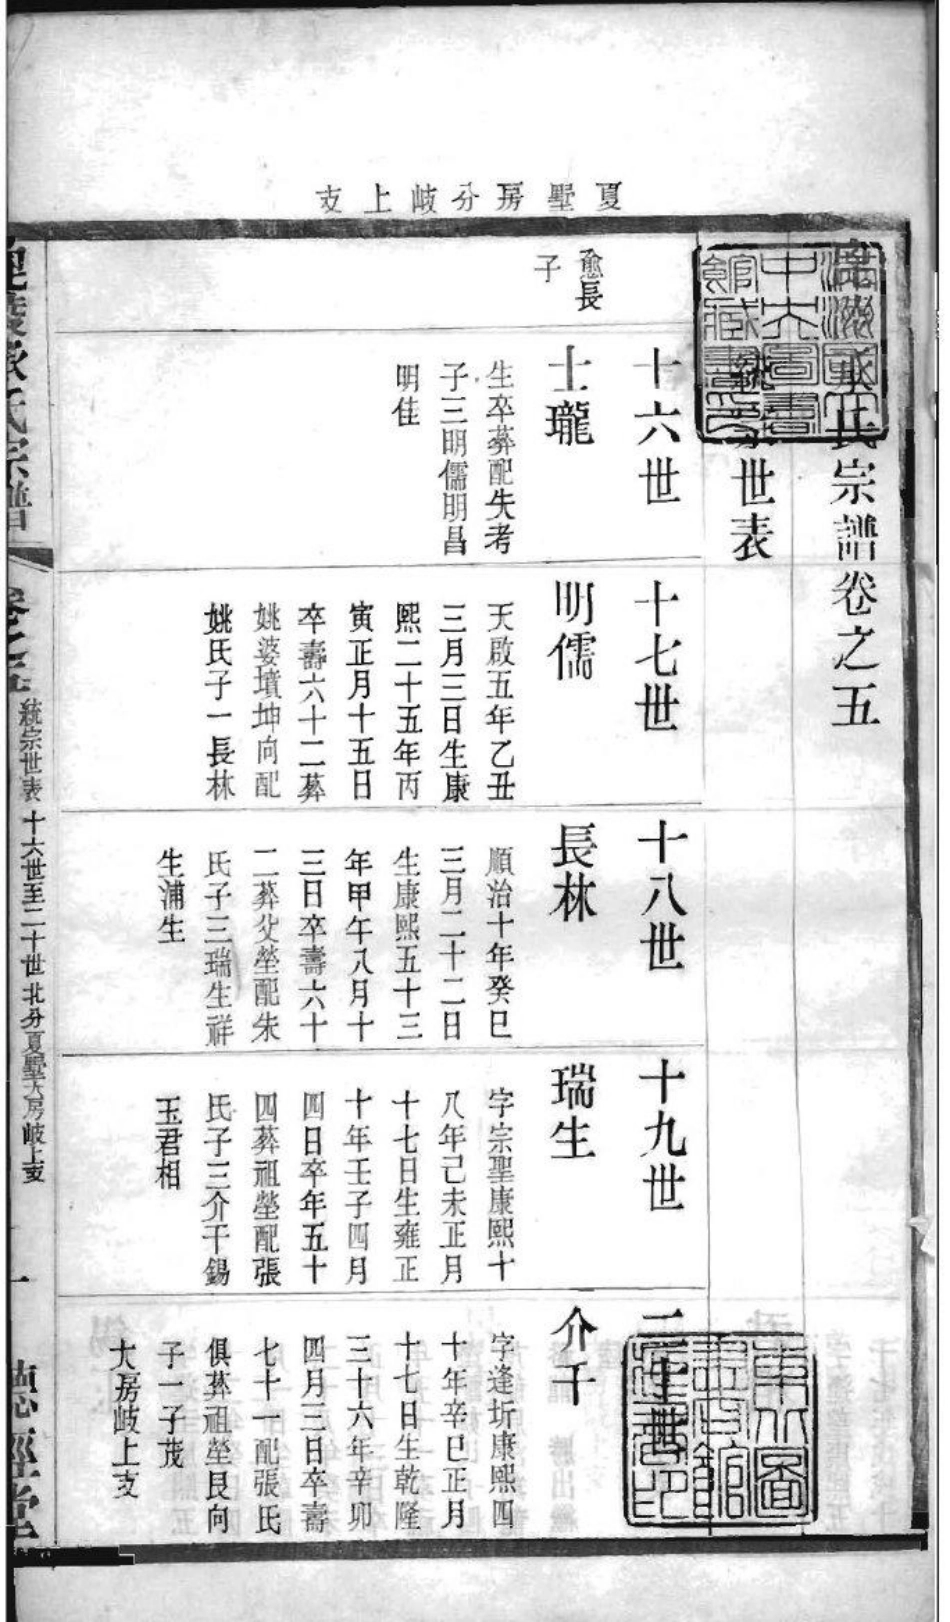 夏墅房分岐上支
氏宗譜卷之五
世表
十六世
十七世
十八世
十九世
二十世
愈長
子
士瓏
生卒葬配失考
子三明儒明昌
明佳
明儒
天啟五年乙丑
三月三日生康
熙二十五年丙
寅正月十五日
卒壽六十二葬
姚婆墳坤向配
姚氏子一長林
長林
順治十年癸巳
三月二十二日
生康熙五十三
年甲午八月十
三日卒壽六十
二葬父塋配朱
氏子三瑞生祥
生浦生
瑞生
字宗聖康熙十
八年己未正月
十七日生雍正
十年壬子四月
四日卒年五十
四葬祖塋配張
氏子三介干錫
玉君相
介干
字逢圻康熙四
十年辛巳正月
十七日生乾隆
三十六年辛卯
四月三日卒壽
七十一配張氏
俱葬祖塋艮向
子一子茂
大房岐上支
氏宗譜
卷之五
統宗世表 十六世至二十世北分夏墅大房岐上支
一
德經堂